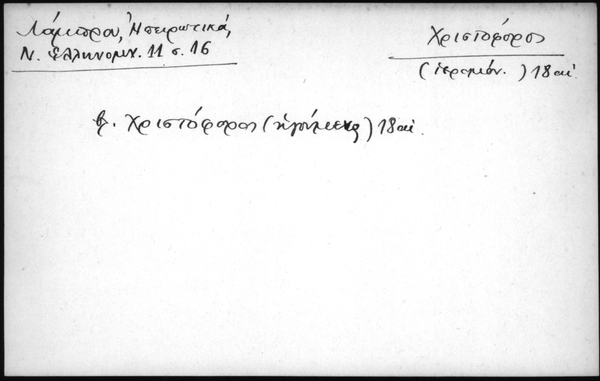 Λάμπρου, Ἠπειρωτικά,
Ν. Ἑλληνομν. 11 σ. 16
Χριστόφορος
(ἱερομόν.) 18 αἰ.
β. Χριστόφορος (ἡγούμενος) 18 αἰ.